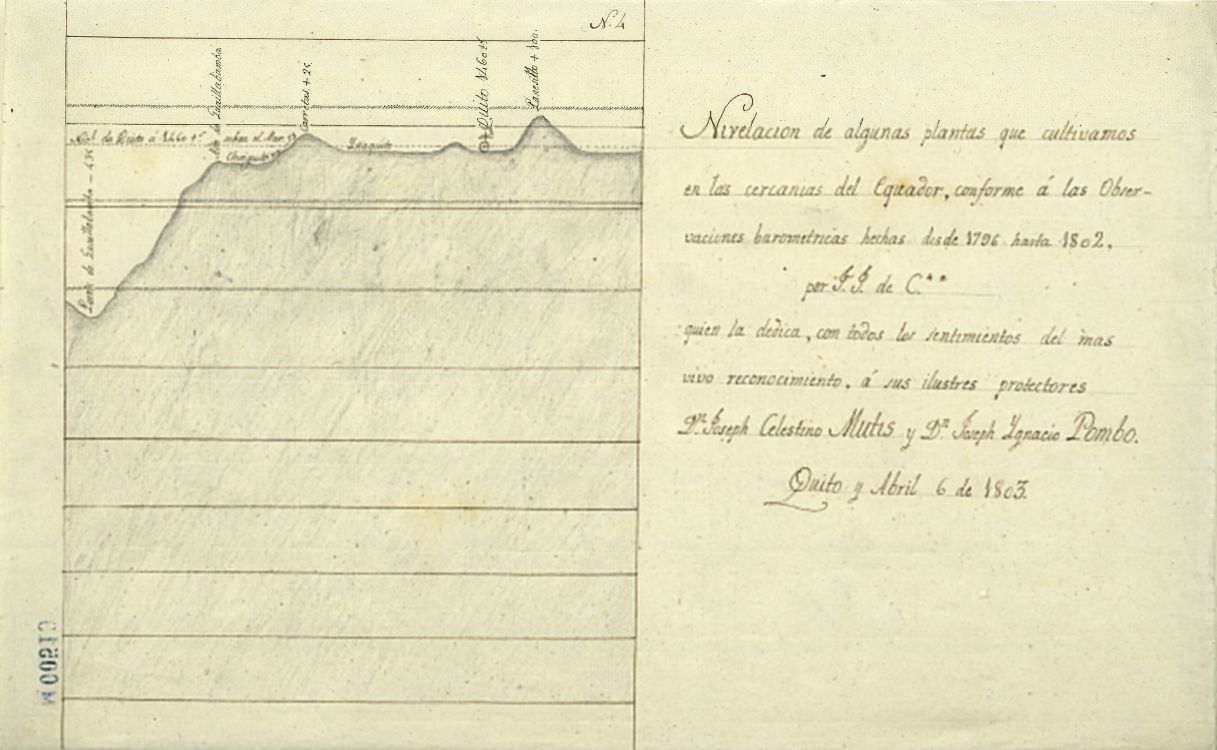 N. 4
Alt.ª de Guaillabamba
Carretas + 25
Quito 1460 tˢ
Panesillo + 100.
de Quito á 1460 tˢ sobre el Mar
Yñaquito
Puente de Guaillabamba
Nivelacion de algunas plantas que cultivamos
en las cercanias del Equador, conforme á las Obser-
vaciones barometricas hechas desde 1796 hasta 1802,
por F. J. de C.**
quien la dedica, con todos los sentimientos del mas
vivo reconocimiento, á sus ilustres protectores
Dⁿ. Joseph Celestino Mutis y Dⁿ. Joseph Ygnacio Pombo.
Quito y Abril 6 de 1803.